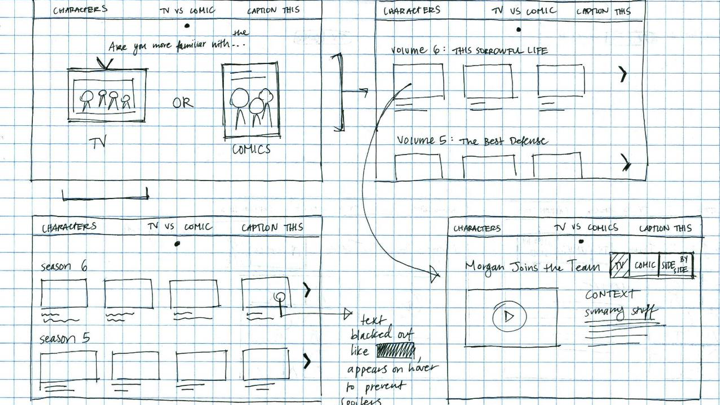 CHARACTERS TV VS COMIC CAPTION THIS
Are you more familiar with the...
OR
TV
COMICS
CHARACTERS TV VS COMIC CAPTION THIS
VOLUME 6: THIS SORROWFUL LIFE
VOLUME 5: The Best Defense
CHARACTERS TV VS COMIC CAPTION THIS
season 6
season 5
text
blacked out
like
appears on hover
to prevent
spoilers
CHARACTERS TV VS COMICS CAPTION THIS
Morgan Joins the Team
TV COMIC SIDE BY SIDE
CONTEXT
summary stuff